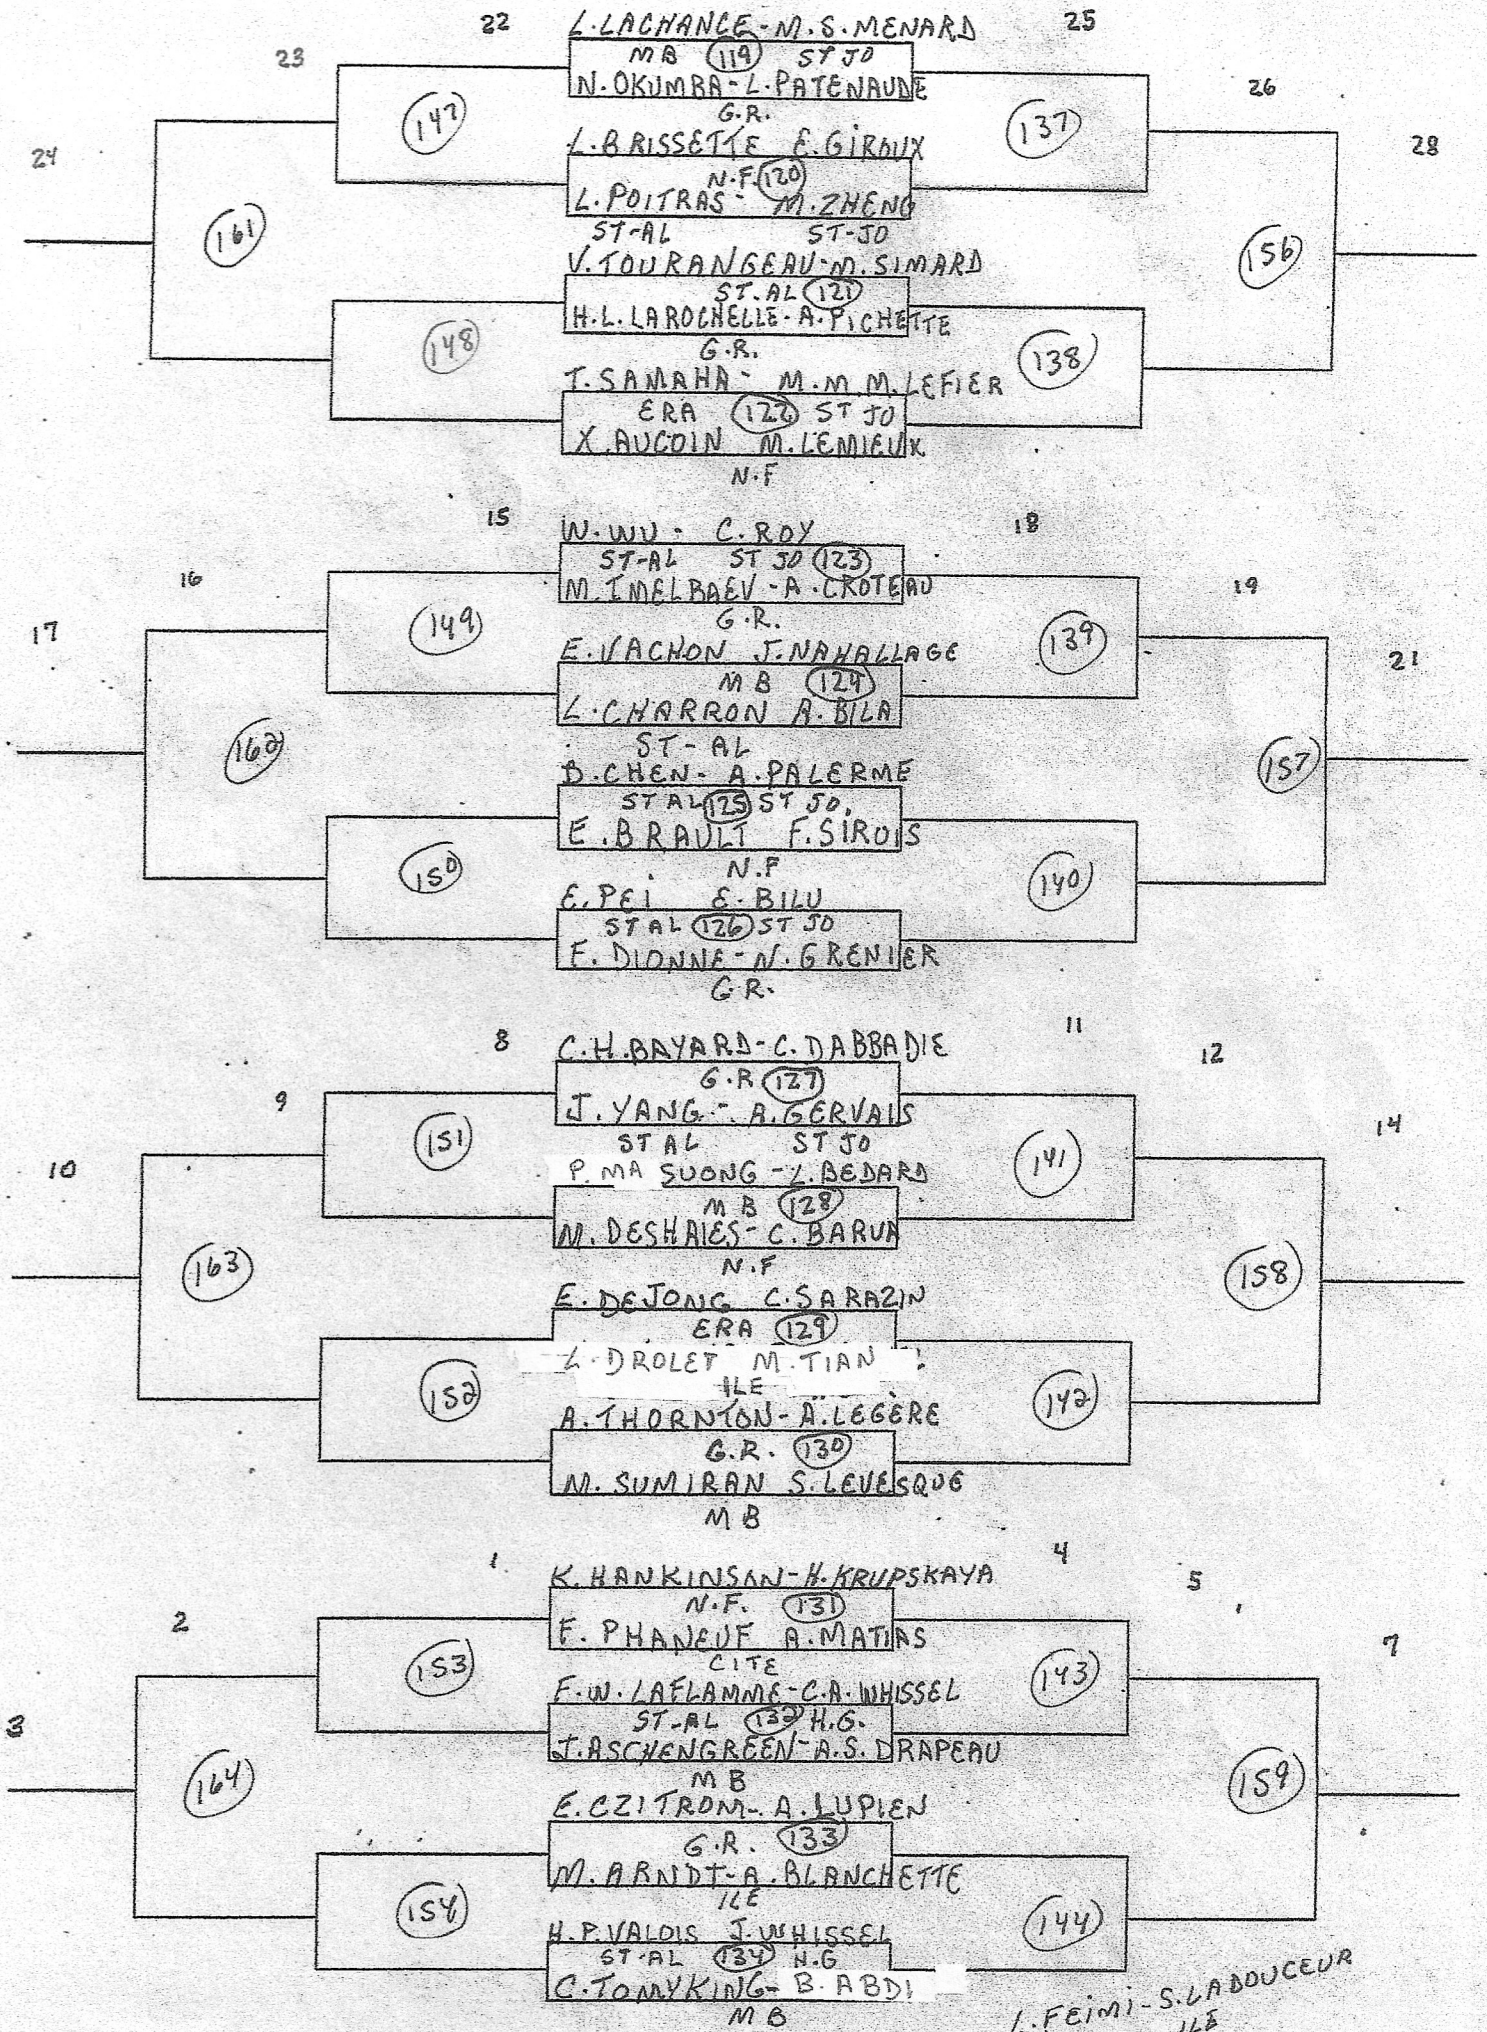 22 L.LACHANCE-M.S.MENARD 25
23 MB 119 ST JO
N.OKUMBA-L.PATENAUDE 26
147 G.R. 137
L.BRISSETTE E.GIROUX
24 N.F. 120 28
L.POITRAS- M.ZHENG
161 ST-AL ST-JO 156
V.TOURANGEAU-M.SIMARD
ST.AL 121
H.L.LAROCHELLE-A.PICHETTE
148 G.R. 138
T.SAMAHA- M.M.M.LEFIER
ERA 122 ST JO
X.AUCOIN M.LEMIEUX
N.F
15 W.WU- C.ROY 18
16 ST-AL ST JO 123 19
M.IMELBAEV-A.CROTEAU
17 149 G.R. 139
E.VACHON J.NAHALLAGE 21
MB 124
L.CHARRON A.BILA
162 ST-AL 157
B.CHEN- A.PALERME
ST AL 125 ST JO.
E.BRAULT F.SIROIS
150 N.F 140
E.PEI E.BILU
ST AL 126 ST JO
F.DIONNE-N.GRENIER
G.R.
8 C.H.BAYARD-C.DABBADIE 11
9 G.R 127 12
J.YANG-A.GERVAIS
151 ST AL ST JO 141 14
10 P.MA SUONG-L.BEDARD
MB 128
M.DESHAIES-C.BARUA
163 N.F 158
E.DEJONG C.SARAZIN
ERA 129
L.DROLET M.TIAN
152 ILE 142
A.THORNTON-A.LEGÈRE
G.R. 130
M.SUMIRAN S.LEVESQUE
MB
1 K.HANKINSON-H.KRUPSKAYA 4
2 N.F. 131 5
F.PHANEUF A.MATIAS 7
153 CITE 143
F.W.LAFLAMME-C.A.WHISSEL
3 ST-AL 132 H.G.
J.ASCHENGREEN-A.S.DRAPEAU
164 MB 159
E.CZITROM-A.LUPIEN
G.R. 133
M.ARNDT-A.BLANCHETTE
154 ILE 144
H.P.VALOIS J.WHISSEL
ST-AL 134 H.G
C.TOMYKING-B.ABDI
MB
L.FEIMI-S.LADOUCEUR
ILE